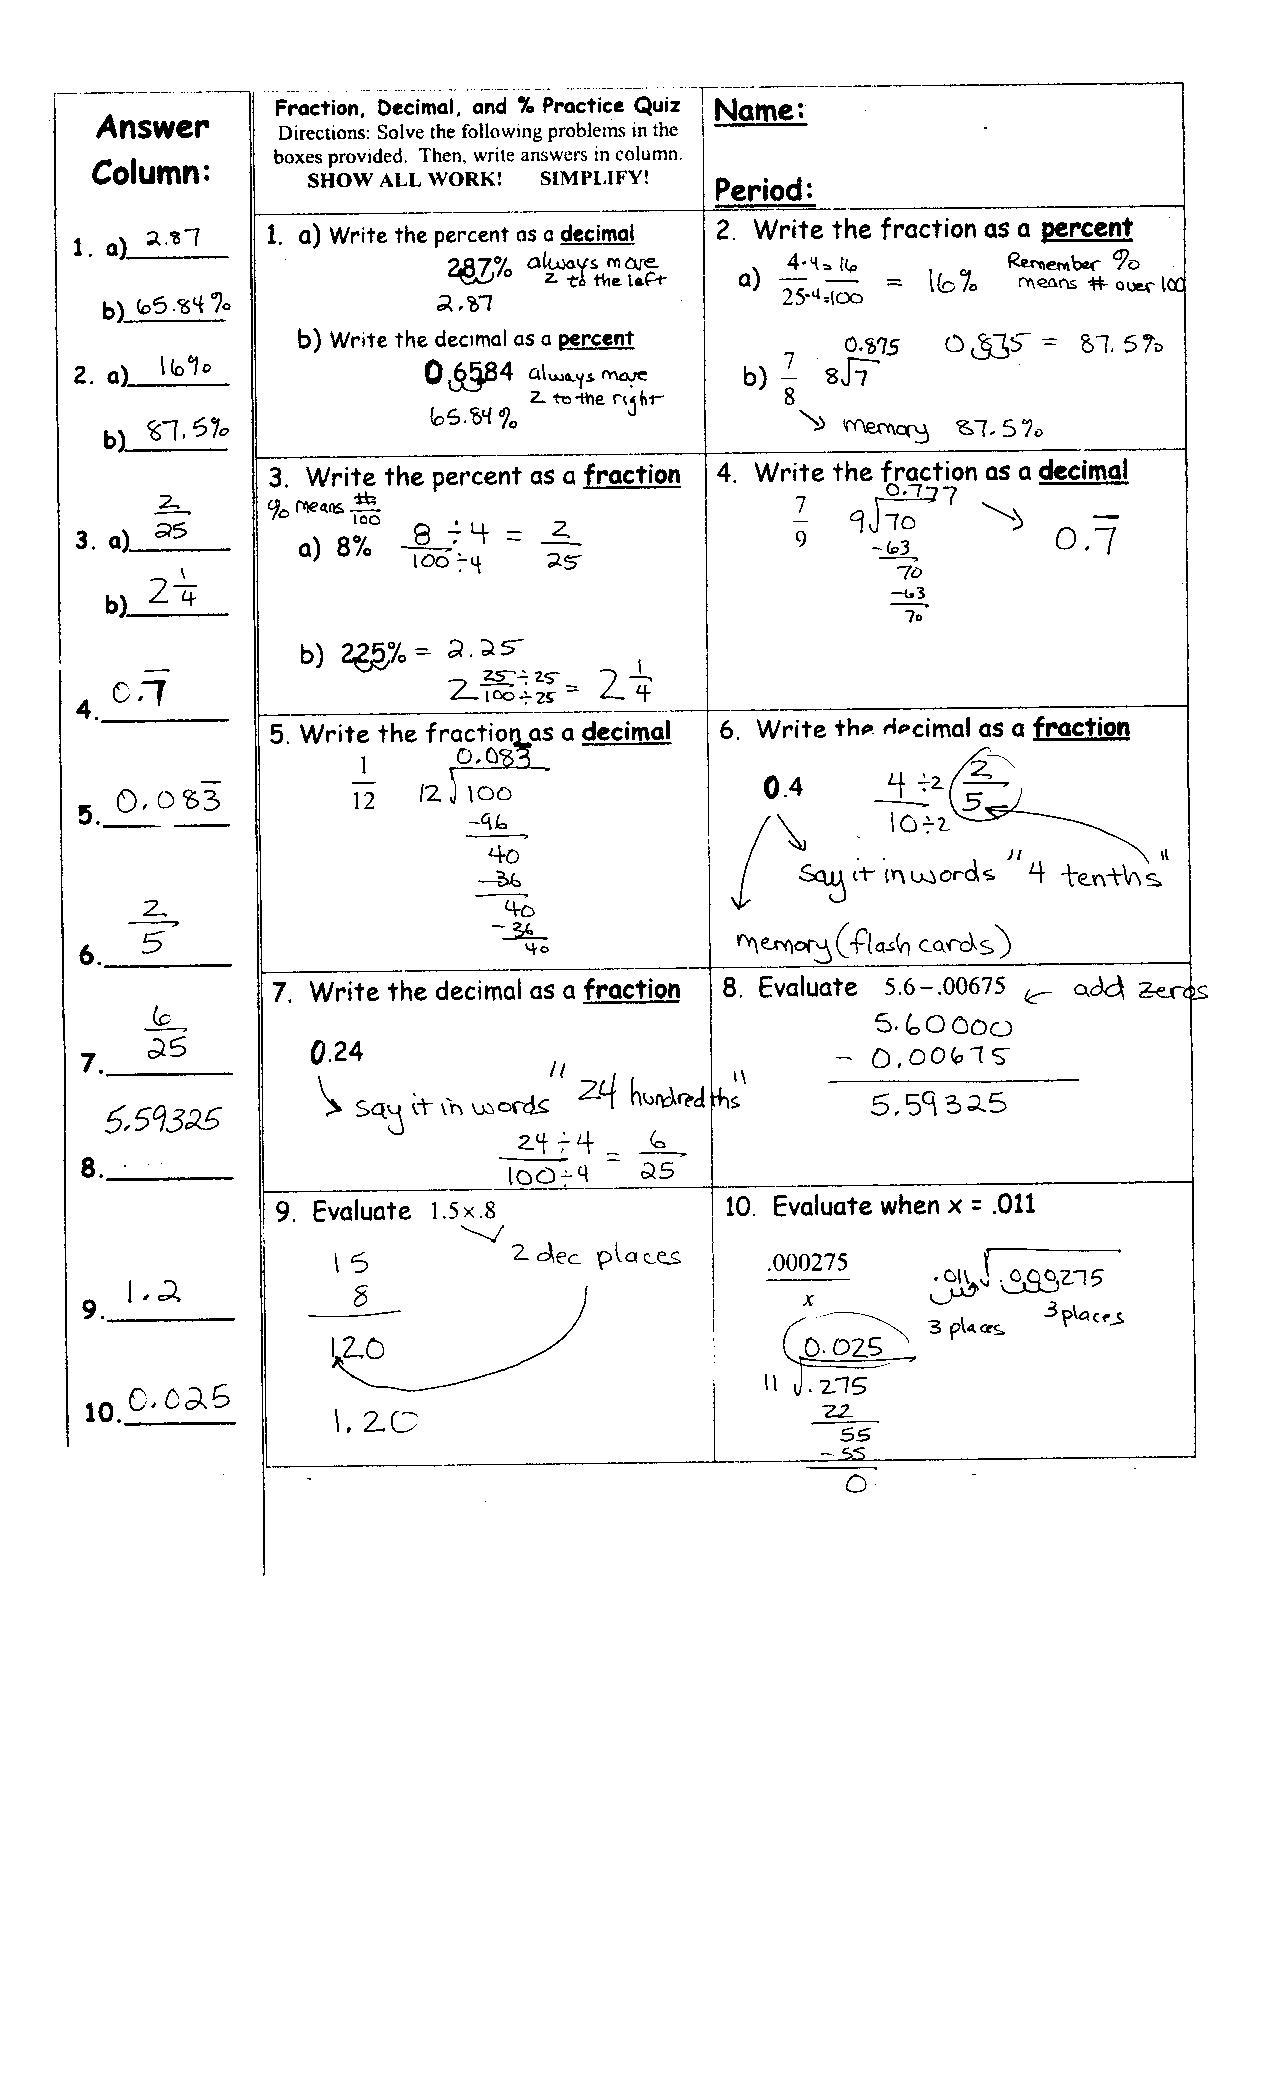 Answer
Column:
1. a) 2.87
b) 65.84%
2. a) 16%
b) 87.5%
3. a) 2/25
b) 2 1/4
4. 0.7̅
5. 0.083̅
6. 2/5
7. 6/25
5.59325
8.
9. 1.2
10. 0.025
Fraction, Decimal, and % Practice Quiz
Directions: Solve the following problems in the
boxes provided. Then, write answers in column.
SHOW ALL WORK! SIMPLIFY!
Name:
Period:
1. a) Write the percent as a decimal
287% always move
2 to the left
2.87
b) Write the decimal as a percent
0.6584 always move
2 to the right
65.84%
2. Write the fraction as a percent
a) 4·4=16 / 25·4=100 = 16% Remember %
means # over 100
b) 7/8 8√7 0.875 0.875 = 87.5%
memory 87.5%
3. Write the percent as a fraction
% means #/100
a) 8% 8÷4 / 100÷4 = 2/25
b) 225% = 2.25
2 25÷25 / 100÷25 = 2 1/4
4. Write the fraction as a decimal
0.777
7/9 9√70 0.7̅
-63
70
-63
70
5. Write the fraction as a decimal
0.083̅
1/12 12√100
-96
40
-36
40
-36
40
6. Write the decimal as a fraction
0.4 4÷2 / 10÷2 2/5
say it in words "4 tenths"
memory (flash cards)
7. Write the decimal as a fraction
0.24
say it in words "24 hundredths"
24÷4 / 100÷4 = 6/25
8. Evaluate 5.6-.00675 ← add zeros
5.60000
- 0.00675
5.59325
9. Evaluate 1.5×.8
15 2 dec places
8
120
1.20
10. Evaluate when x = .011
.000275 / x .011√.000275
3 places 3 places
0.025
11√.275
22
55
-55
0